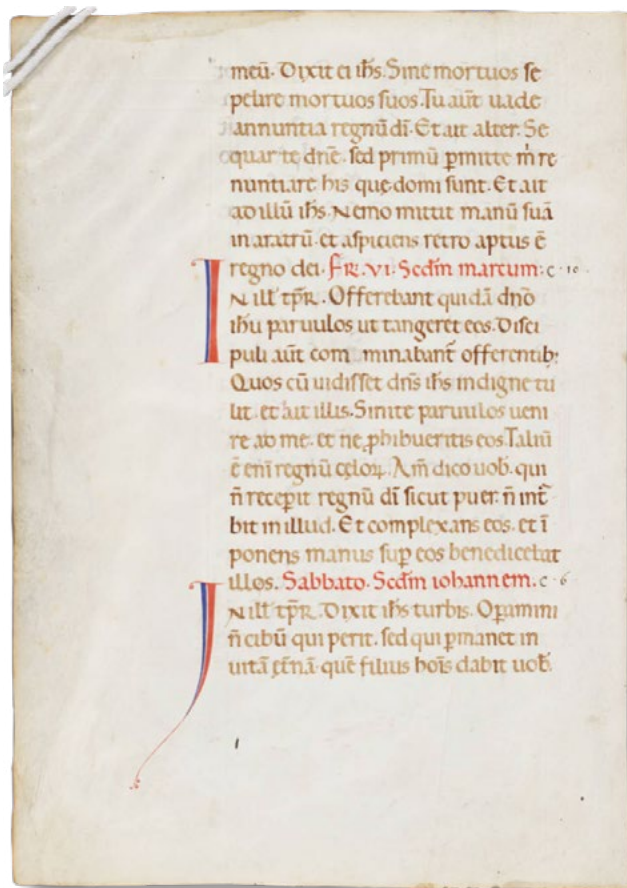 meū. Dixit ei ih̄s. Sine mortuos se
pelire mortuos suos. Tu aūt uade
annuntia regnū dī. Et ait alter. Se
quar te dn̄e. sed primū ꝑmitte m̄ re
nuntiare his quę domi sunt. Et ait
ad illū ih̄s. Nemo mittit manū suā
in aratrū. et aspiciens retro aptus ē
regno dei. FR̄. VI. Scd̄m marcum. c. 10.
IN ill̄ tp̄R. Offerebant quidā dn̄o
ih̄u paruulos ut tangeret eos. Disci
puli aūt com minabant̄ offerentib;
Quos cū uidisset dn̄s ih̄s indigne tu
lit. et ait illis. Sinite paruulos ueni
re ad me. et ne ꝓhibueritis eos. Taliū
ē enī regnū cęloꝝ. Am̄ dico uob̄. qui
n̄ receꝑit regnū dī sicut puer. n̄ int̄
bit in illud. Et complexans eos. et ī
ponens manus suꝑ eos benedicebat
illos. Sabbato. Scd̄m iohannem. c. 6
IN ill̄ tp̄R. Dixit ih̄s turbis. Oꝑamini
n̄ cibū qui perit. sed qui ꝑmanet in
uitā ęt̄nā. quē filius hoīs dabit uob̄.